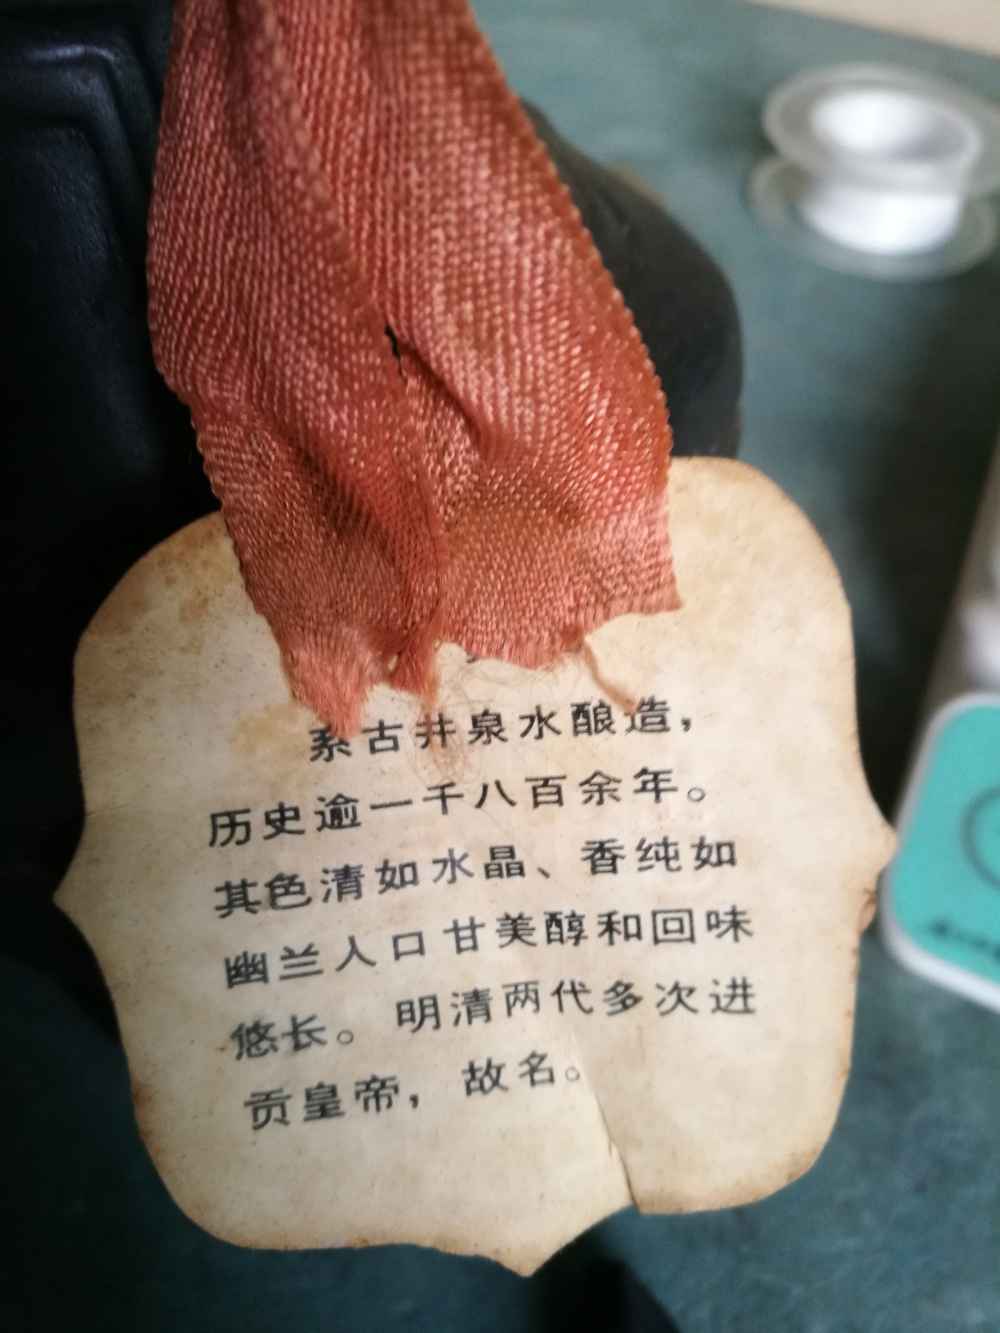 系古井泉水酿造，
历史逾一千八百余年。
其色清如水晶、香纯如
幽兰人口甘美醇和回味
悠长。明清两代多次进
贡皇帝，故名。